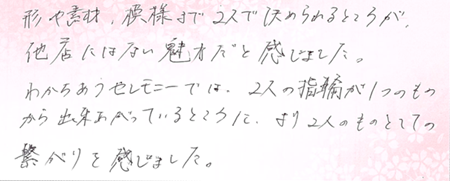 形や素材、模様まで2人で決められるところが、
他店にはない魅力だと感じました。
わかちあうセレモニーでは、2人の指輪が1つのもの
から出来あがっているところに、より2人のものとしての
繋がりを感じました。